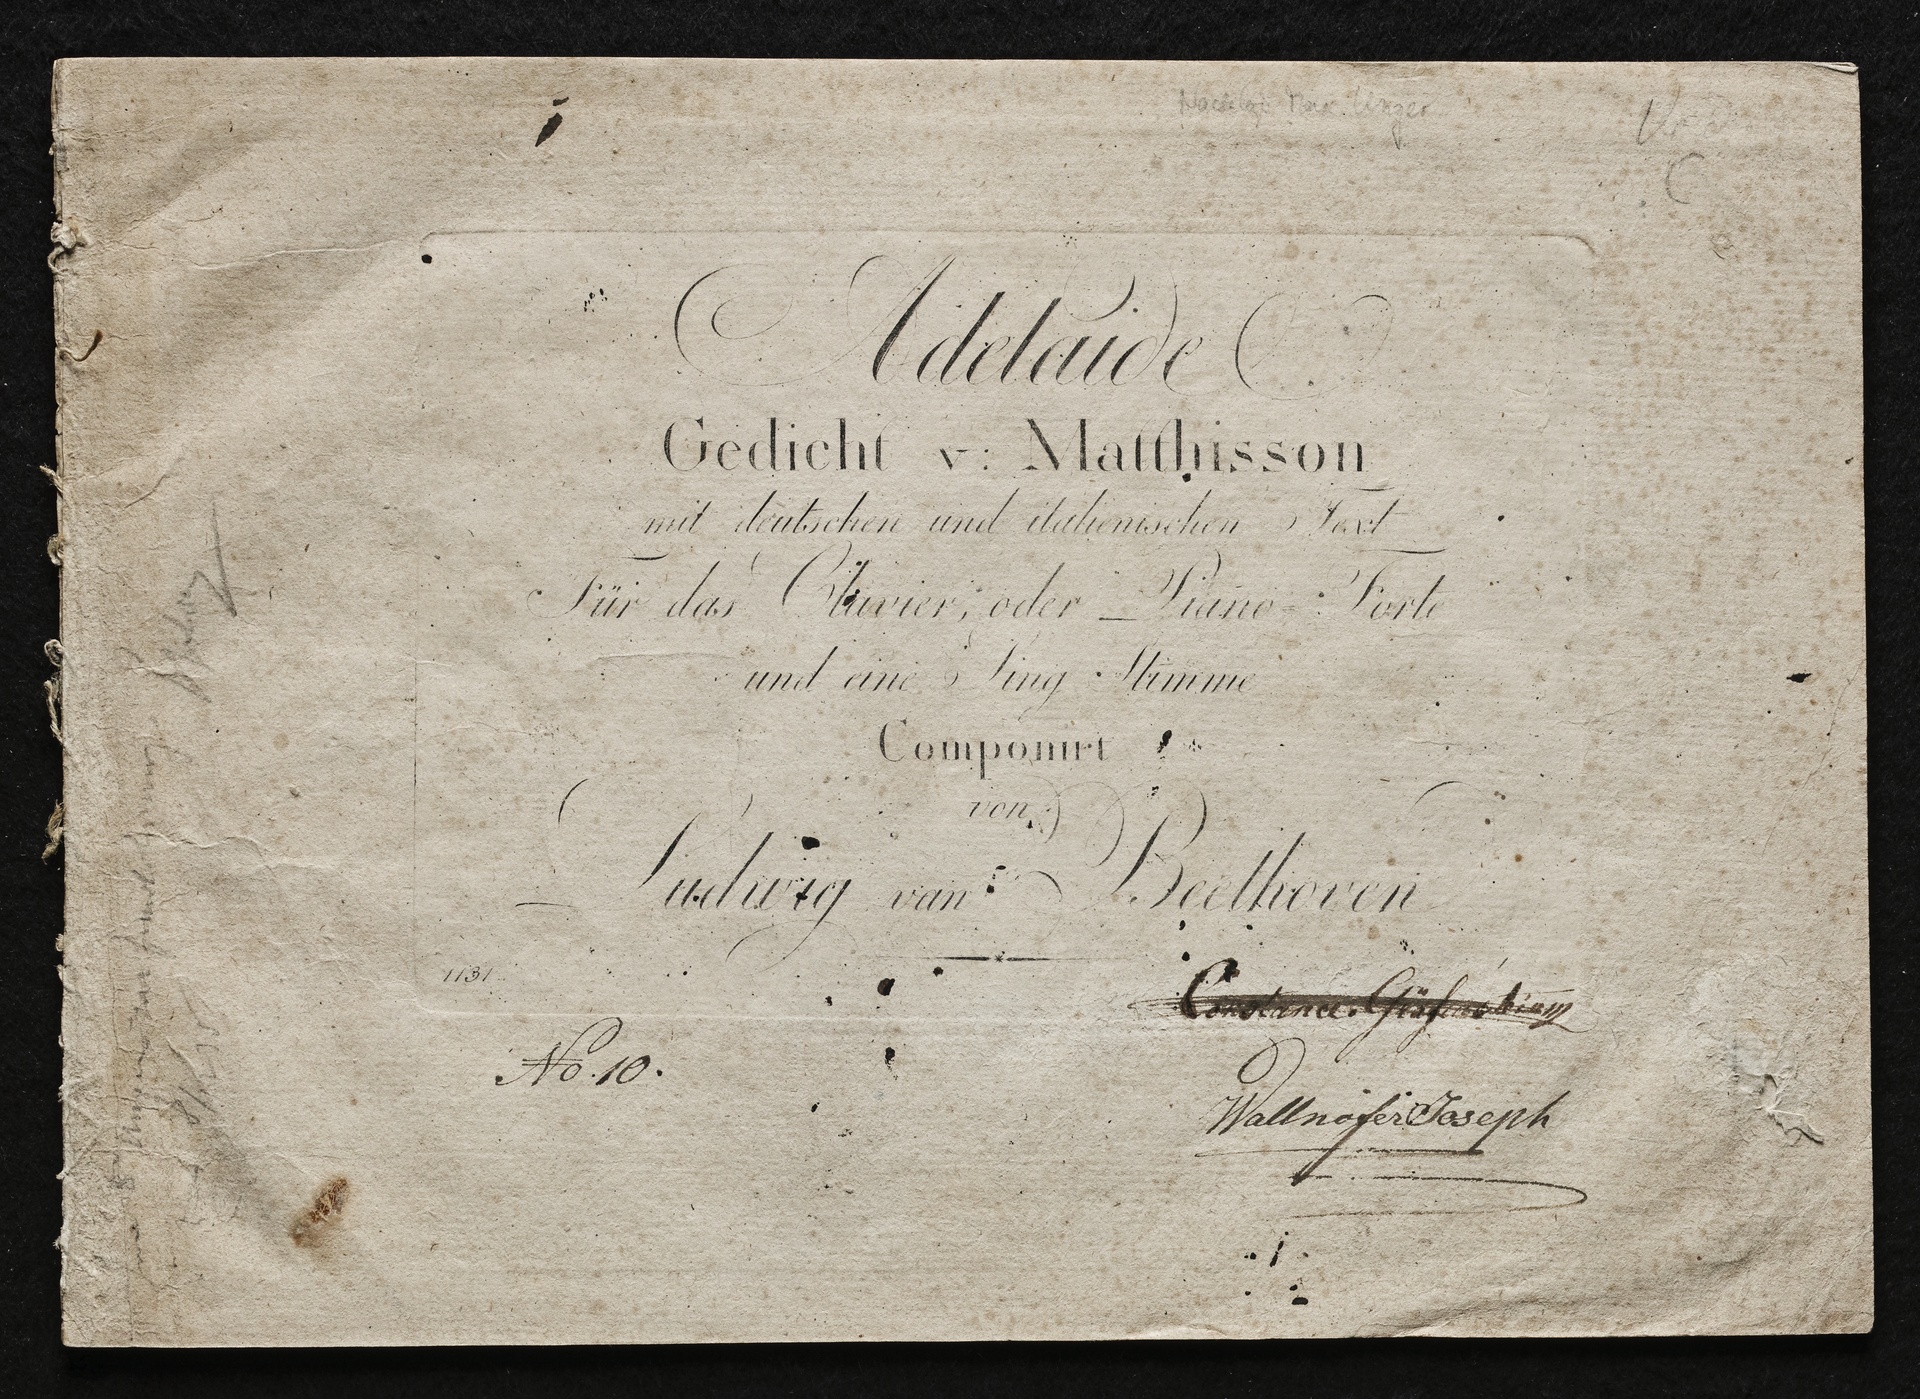 Adelaide
Gedicht v: Matthisson
mit deutschen und italienischen Text
Für das Clavier, oder Piano-Forte
und eine Sing Stimme
Componirt
von
Ludwig van Beethoven
1131.
Constance
No. 10.
Wallnöfer Joseph